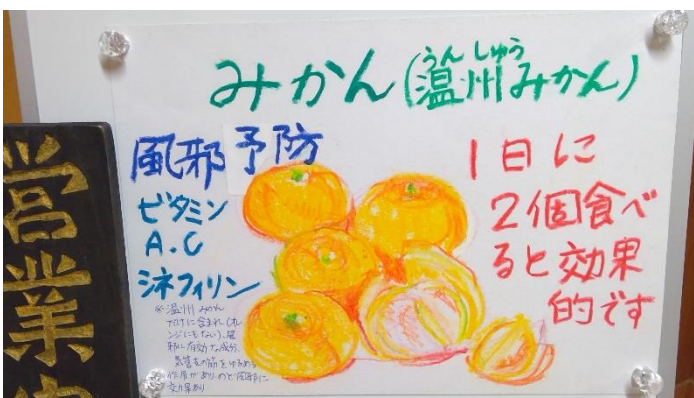 営業中
みかん(温州みかん)
うんしゅう
風邪予防
ビタミン
A.C
シネフィリン
※温州みかん
だけに含まれ(オレ
ンジにもない)、風
邪に有効な成分。
気管支の筋をゆるめる
作用がありのど風邪に
効果あり
1日に
2個食べ
ると効果
的です